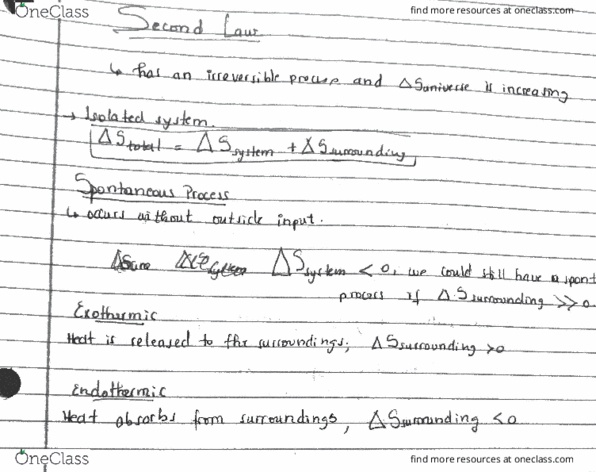 OneClass
find more resources at oneclass.com
Second Law
↳ has an irreversible process and ΔSuniverse is increasing
→ Isolated system.
ΔStotal = ΔSsystem + ΔSsurrounding
Spontaneous Process
↳ occurs without outside input.
ΔSsystem < 0, we could still have a spont
process if ΔSsurrounding >> 0
Exothermic
Heat is released to the surroundings; ΔSsurrounding >0
Endothermic
Heat absorbs from surroundings, ΔSsurrounding <0
OneClass
find more resources at oneclass.com